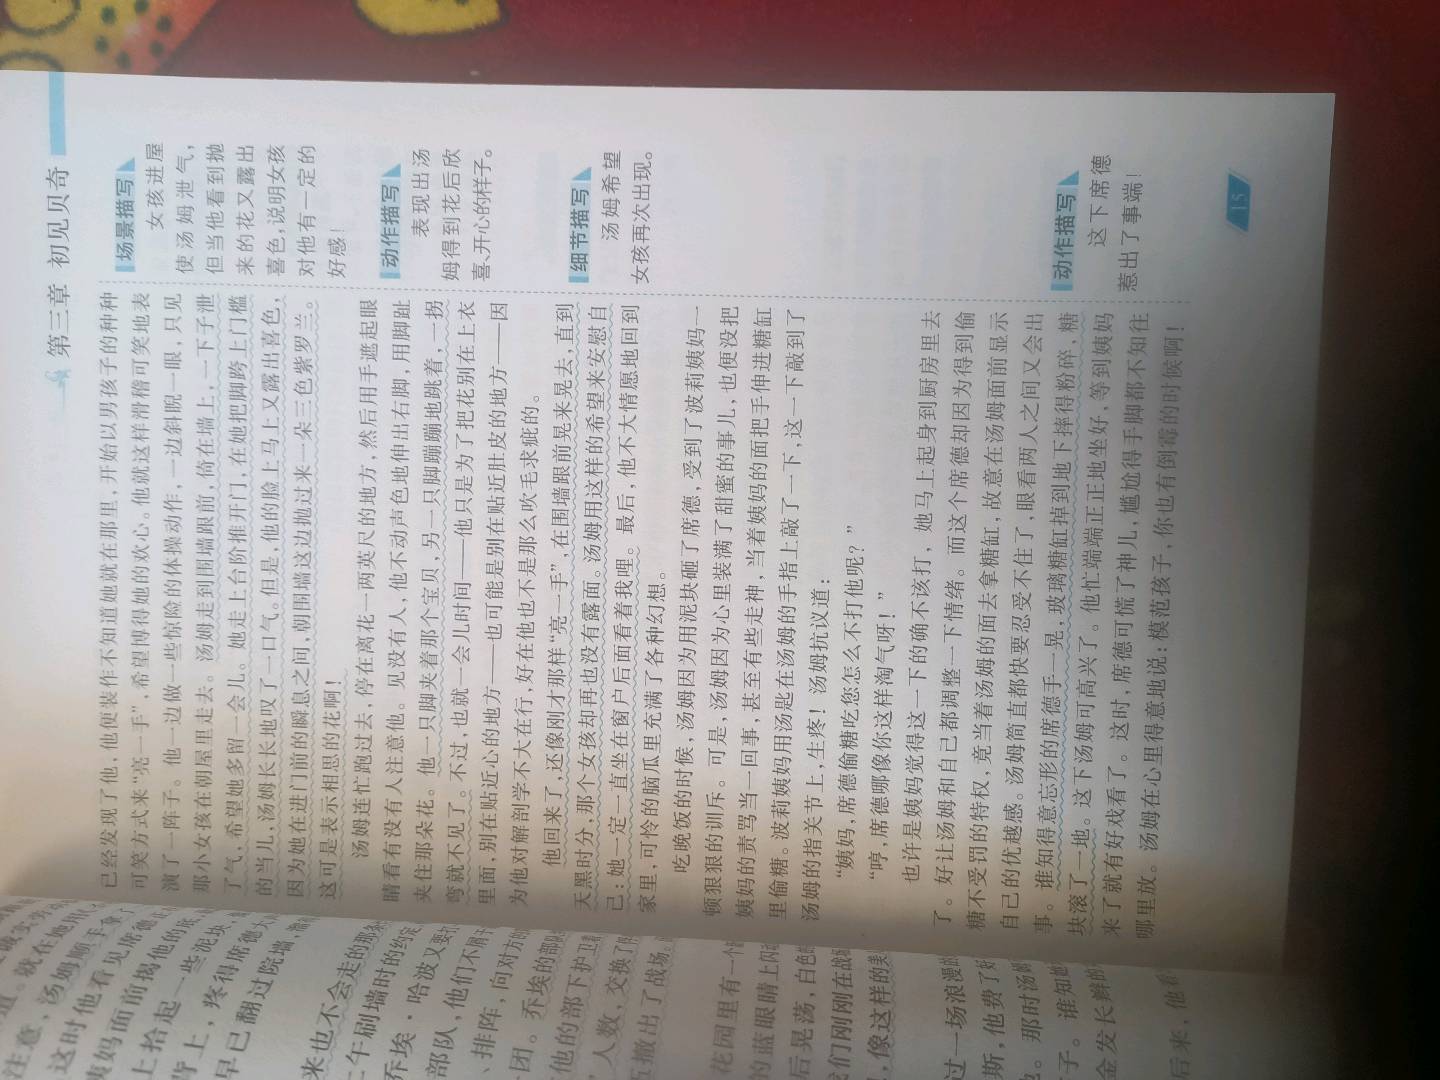 第三章 初见贝奇
已经发现了他，他便装作不知道她就在那里，开始以男孩子的种种
可笑方式来“亮一手”，希望博得她的欢心。他就这样滑稽可笑地表
演了一阵子。他一边做一些惊险的体操动作，一边斜睨一眼，只见
那小女孩在朝屋里走去。汤姆走到围墙跟前，倚在墙上，一下子泄
了气，希望她多留一会儿。她走上台阶推开门，在她把脚跨上门槛
的当儿，汤姆长长地叹了一口气。但是，他的脸上马上又露出喜色，
因为她在进门前的瞬息之间，朝围墙这边抛过来一朵三色紫罗兰。
这可是表示相思的花啊！
汤姆连忙跑过去，停在离花一两英尺的地方，然后用手遮起眼
睛看有没有人注意他。见没有人，他不动声色地伸出右脚，用脚趾
夹住那朵花。他一只脚夹着那个宝贝，另一只脚蹦蹦地跳着，一拐
弯就不见了。不过，也就一会儿时间——他只是为了把花别在上衣
里面，别在贴近心的地方——也可能是别在贴近肚皮的地方——因
为他对解剖学不大在行，好在他也不是那么吹毛求疵的。
他回来了，还像刚才那样“亮一手”，在围墙跟前晃来晃去，直到
天黑时分，那个女孩却再也没有露面。汤姆用这样的希望来安慰自
己：她一定一直坐在窗户后面看着我哩。最后，他不大情愿地回到
家里，可怜的脑瓜里充满了各种幻想。
吃晚饭的时候，汤姆因为用泥块砸了席德，受到了波莉姨妈一
顿狠狠的训斥。可是，汤姆因为心里装满了甜蜜的事儿，也便没把
姨妈的责骂当一回事，甚至有些走神，当着姨妈的面把手伸进糖缸
里偷糖。波莉姨妈用汤匙在汤姆的手指上敲了一下，这一下敲到了
汤姆的指关节上，生疼！汤姆抗议道：
“姨妈，席德偷糖吃您怎么不打他呢？”
“哼，席德哪像你这样淘气呀！”
也许是姨妈觉得这一下的确不该打，她马上起身到厨房里去
了。好让汤姆和自己都调整一下情绪。而这个席德却因为得到偷
糖不受罚的特权，竟当着汤姆的面去拿糖缸，故意在汤姆面前显示
自己的优越感。汤姆简直都快要忍受不住了，眼看两人之间又会出
事。谁知得意忘形的席德手一晃，玻璃糖缸掉到地下摔得粉碎，糖
块滚了一地。这下汤姆可高兴了。他忙端端正正地坐好，等到姨妈
来了就有好戏看了。这时，席德可慌了神儿，尴尬得手脚都不知往
哪里放。汤姆在心里得意地说：模范孩子，你也有倒霉的时候啊！
场景描写
女孩进屋
使汤姆泄气，
但当他看到抛
来的花又露出
喜色，说明女孩
对他有一定的
好感！
动作描写
表现出汤
姆得到花后欣
喜、开心的样子。
细节描写
汤姆希望
女孩再次出现。
动作描写
这下席德
惹出了事端！
15
注意，汤姆顺手拿
这时他看见席德正
姨妈面前揭他的底
上拾起一些泥块
背上，疼得席德
早已翻过院墙
来也不会走的那条
上午刷墙时的约定
乔埃·哈波又要
部队，他们不屑
排阵，向对方
团。乔埃的部
他的部下护卫着
人数，交换了
撤出了战场。
花园里有一个
的蓝眼睛上闪
后晃荡，白色
们刚刚在战
，像这样的美
过一场浪漫的
斯，他费了好
。那时汤姆
子。谁知她
金发长辫的
后来，他看